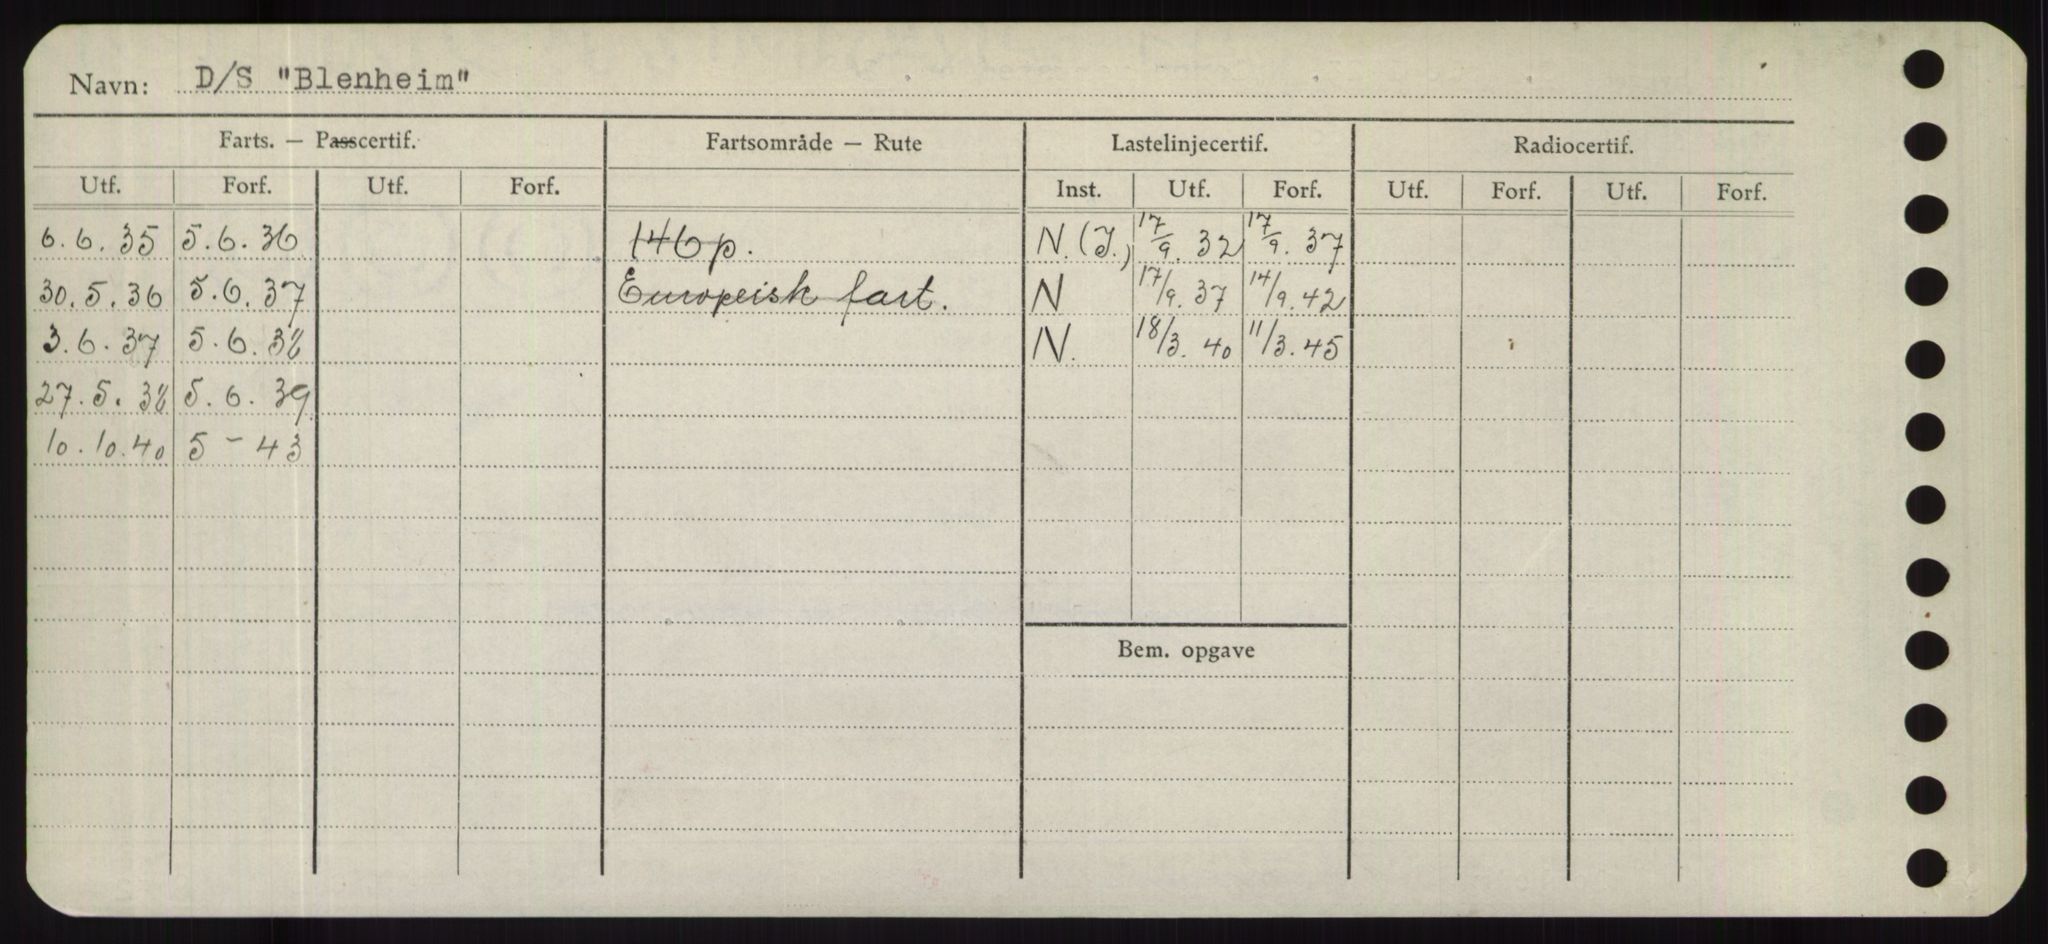 Navn: D/S "Blenheim"
Farts. — Passcertif. Fartsområde — Rute Lastelinjecertif. Radiocertif.
Utf. Forf. Utf. Forf. Inst. Utf. Forf. Utf. Forf. Utf. Forf.
6.6.35 5.6.36 146 p. N.(I.) 17/9.32 17/9.37
30.5.36 5.6.37 Europeisk fart. N 17/9.37 14/9.42
3.6.37 5.6.38 N. 18/3.40 11/3.45
27.5.38 5.6.39
10.10.40 5-43
Bem. opgave